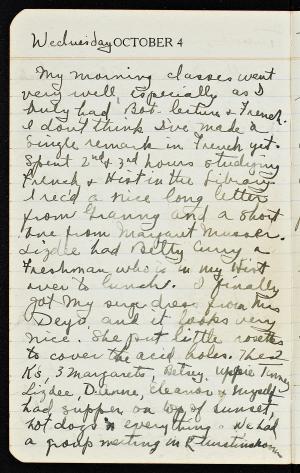 Wednesday OCTOBER 4
My morning classes went
very well, especially as I
only had Bot. lecture & French.
I don't think I've made a
single remark in French yet.
Spent 2nd & 3rd hours studying
French & Hist in the Library
I rec'd a nice long letter
from Granny and a short
one from Margaret Musser.
Lizdee had Betty Curry a
Freshman who is in my Hist
over to lunch. I finally
got my serge dress from Mrs
Deyo, and it looks very
nice. She put little rosettes
to cover the acid holes. The 2
K's, 3 Margarets, Betsey,
Lizdee, Dienne, Eleanor & myself
had supper on top of Sunset,
hot dogs 'n everything. We had
a group meeting in K